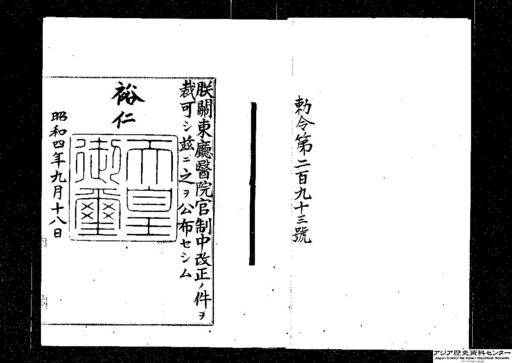 勅令第二百九十三號
朕關東廳醫院官制中改正ノ件ヲ
裁可シ茲ニ之ヲ公布セシム
裕仁
天皇
御璽
昭和四年九月十八日
アジア歴史資料センター
Japan Center for Asian Historical Records